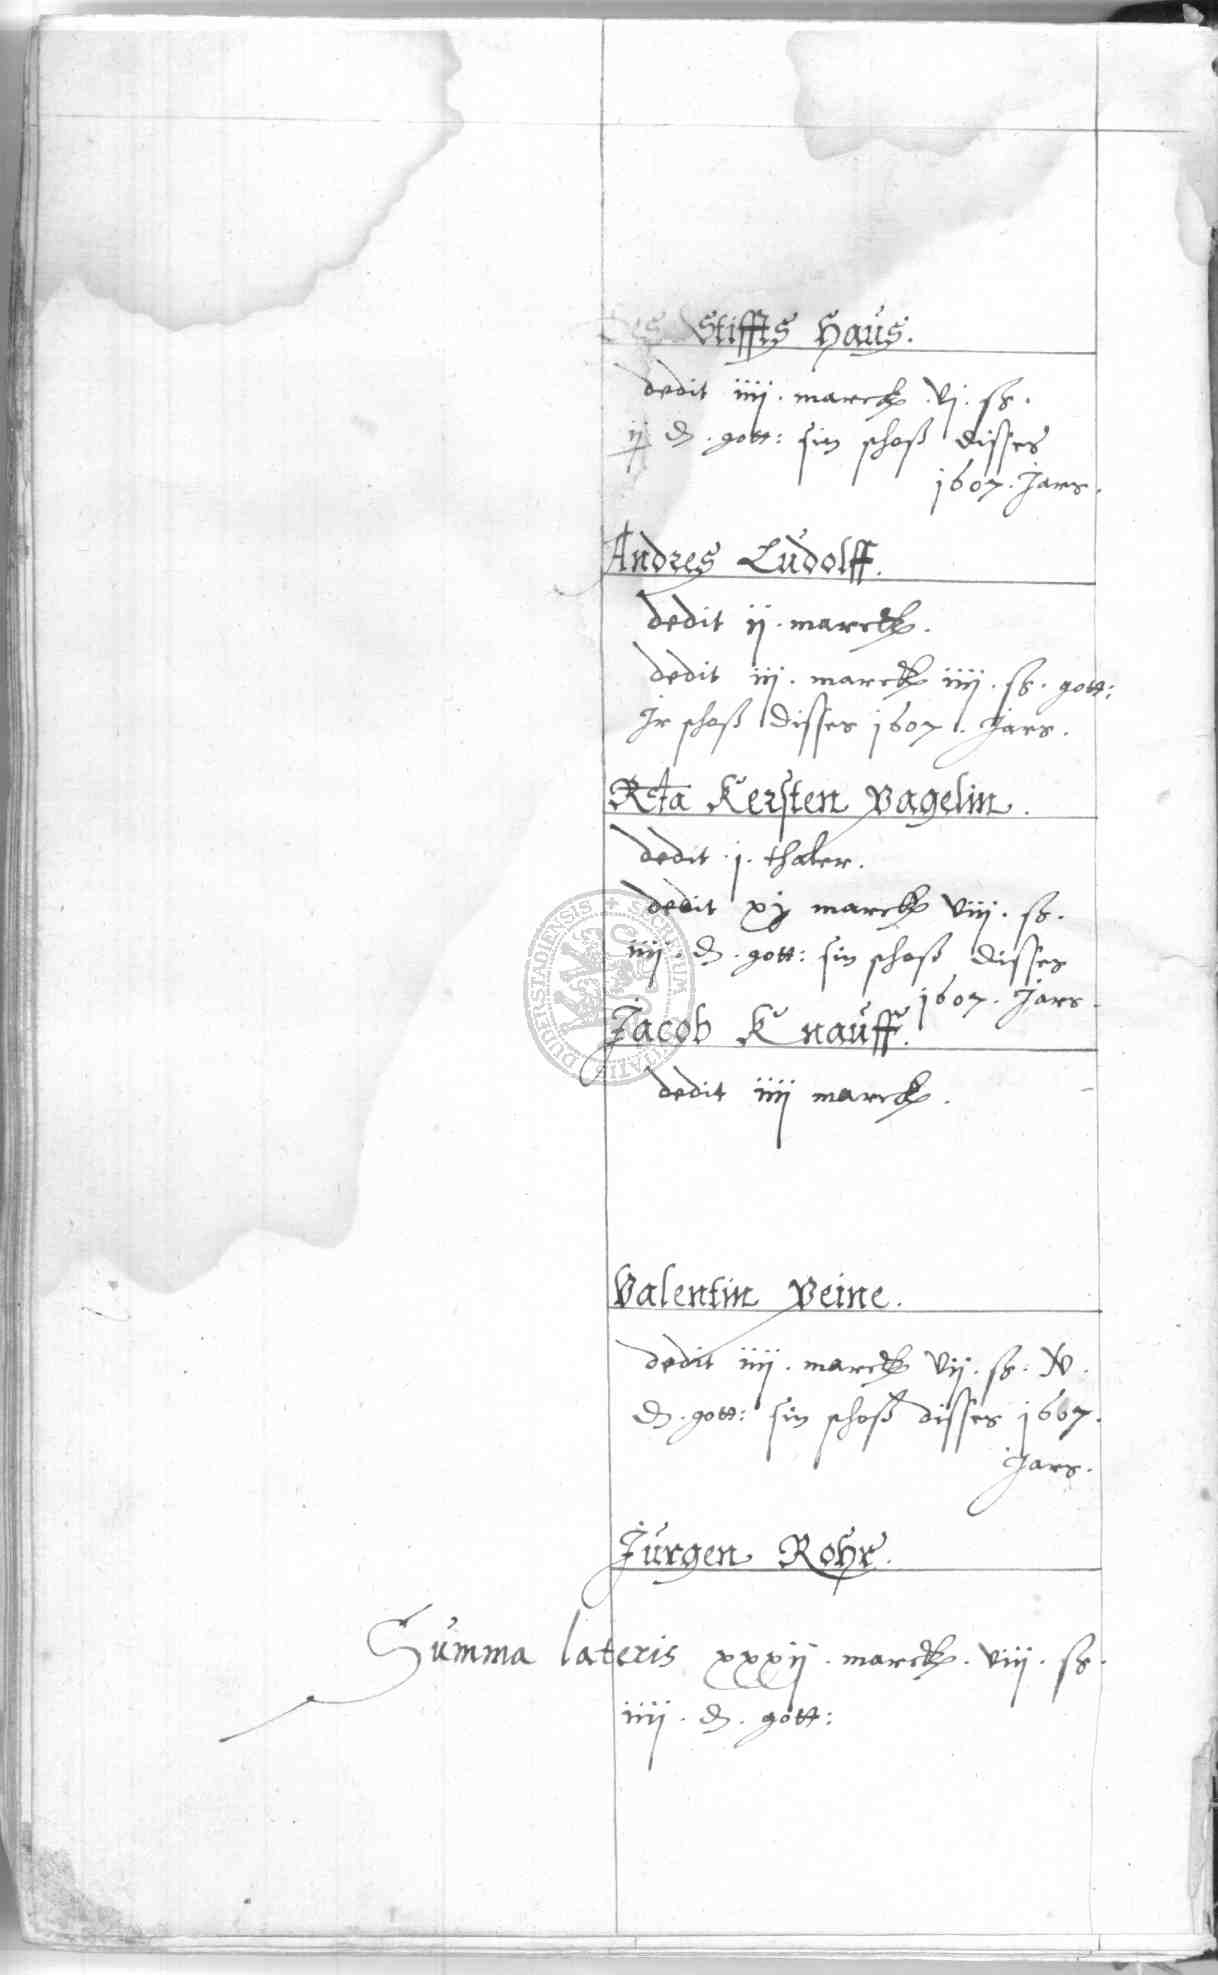 Des Stiffts Haus.
dedit iiij. marck. vj. ß.
ij d. gott: sin schoß disses
1607. Jars.
Andres Ludolff.
dedit ij. marck.
dedit iij. marck iiij. ß. gott:
Jr schoß disses 1607. Jars.
Rta Kersten Vagelin.
dedit .j. thaler.
dedit xj marck viij. ß.
iiij. d. gott: sin schoß disses
1607. Jars.
Jacob Knauff.
dedit iiij marck.
Valentin Veine.
dedit iiij. marck vij. ß.
d. gott: sin schoß disses 1607.
Jars.
Jürgen Rohr.
Summa lateris xxxij. marck. viij. ß.
iiij. d. gott:
SECRETUM CIVITATIS DUDERSTADIENSIS